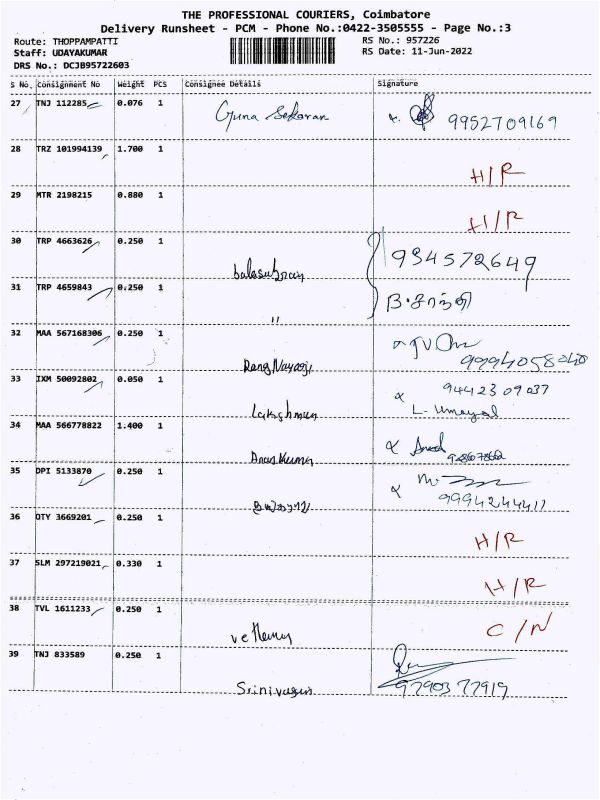 THE PROFESSIONAL COURIERS, Coimbatore
Delivery Runsheet - PCM - Phone No.:0422-3505555 - Page No.:3
Route: THOPPAMPATTI RS No.: 957226
Staff: UDAYAKUMAR RS Date: 11-Jun-2022
DRS No.: DCJB95722603
S No. Consignment No Weight PCS Consignee Details Signature
27 TNJ 112285 0.076 1 Guna Sekaran 9952709169
28 TRZ 101994139 1.700 1 H/R
29 MTR 2198215 0.880 1 H/R
30 TRP 4663626 0.250 1 balasubram 934572649
31 TRP 4659843 0.250 1 " B.சாந்தி
32 MAA 567168306 0.250 1
33 IXM 50092802 0.050 1 Lakshmun 94423 09037
L. Umayal
34 MAA 566778822 1.400 1 Arun Kumar
35 DPI 5133870 0.250 1 9994244411
36 QTY 3669201 0.250 1 H/R
37 SLM 297219021 0.330 1 H/R
38 TVL 1611233 0.250 1 C/N
39 TNJ 833589 0.250 1 Srinivasan 97903 77919